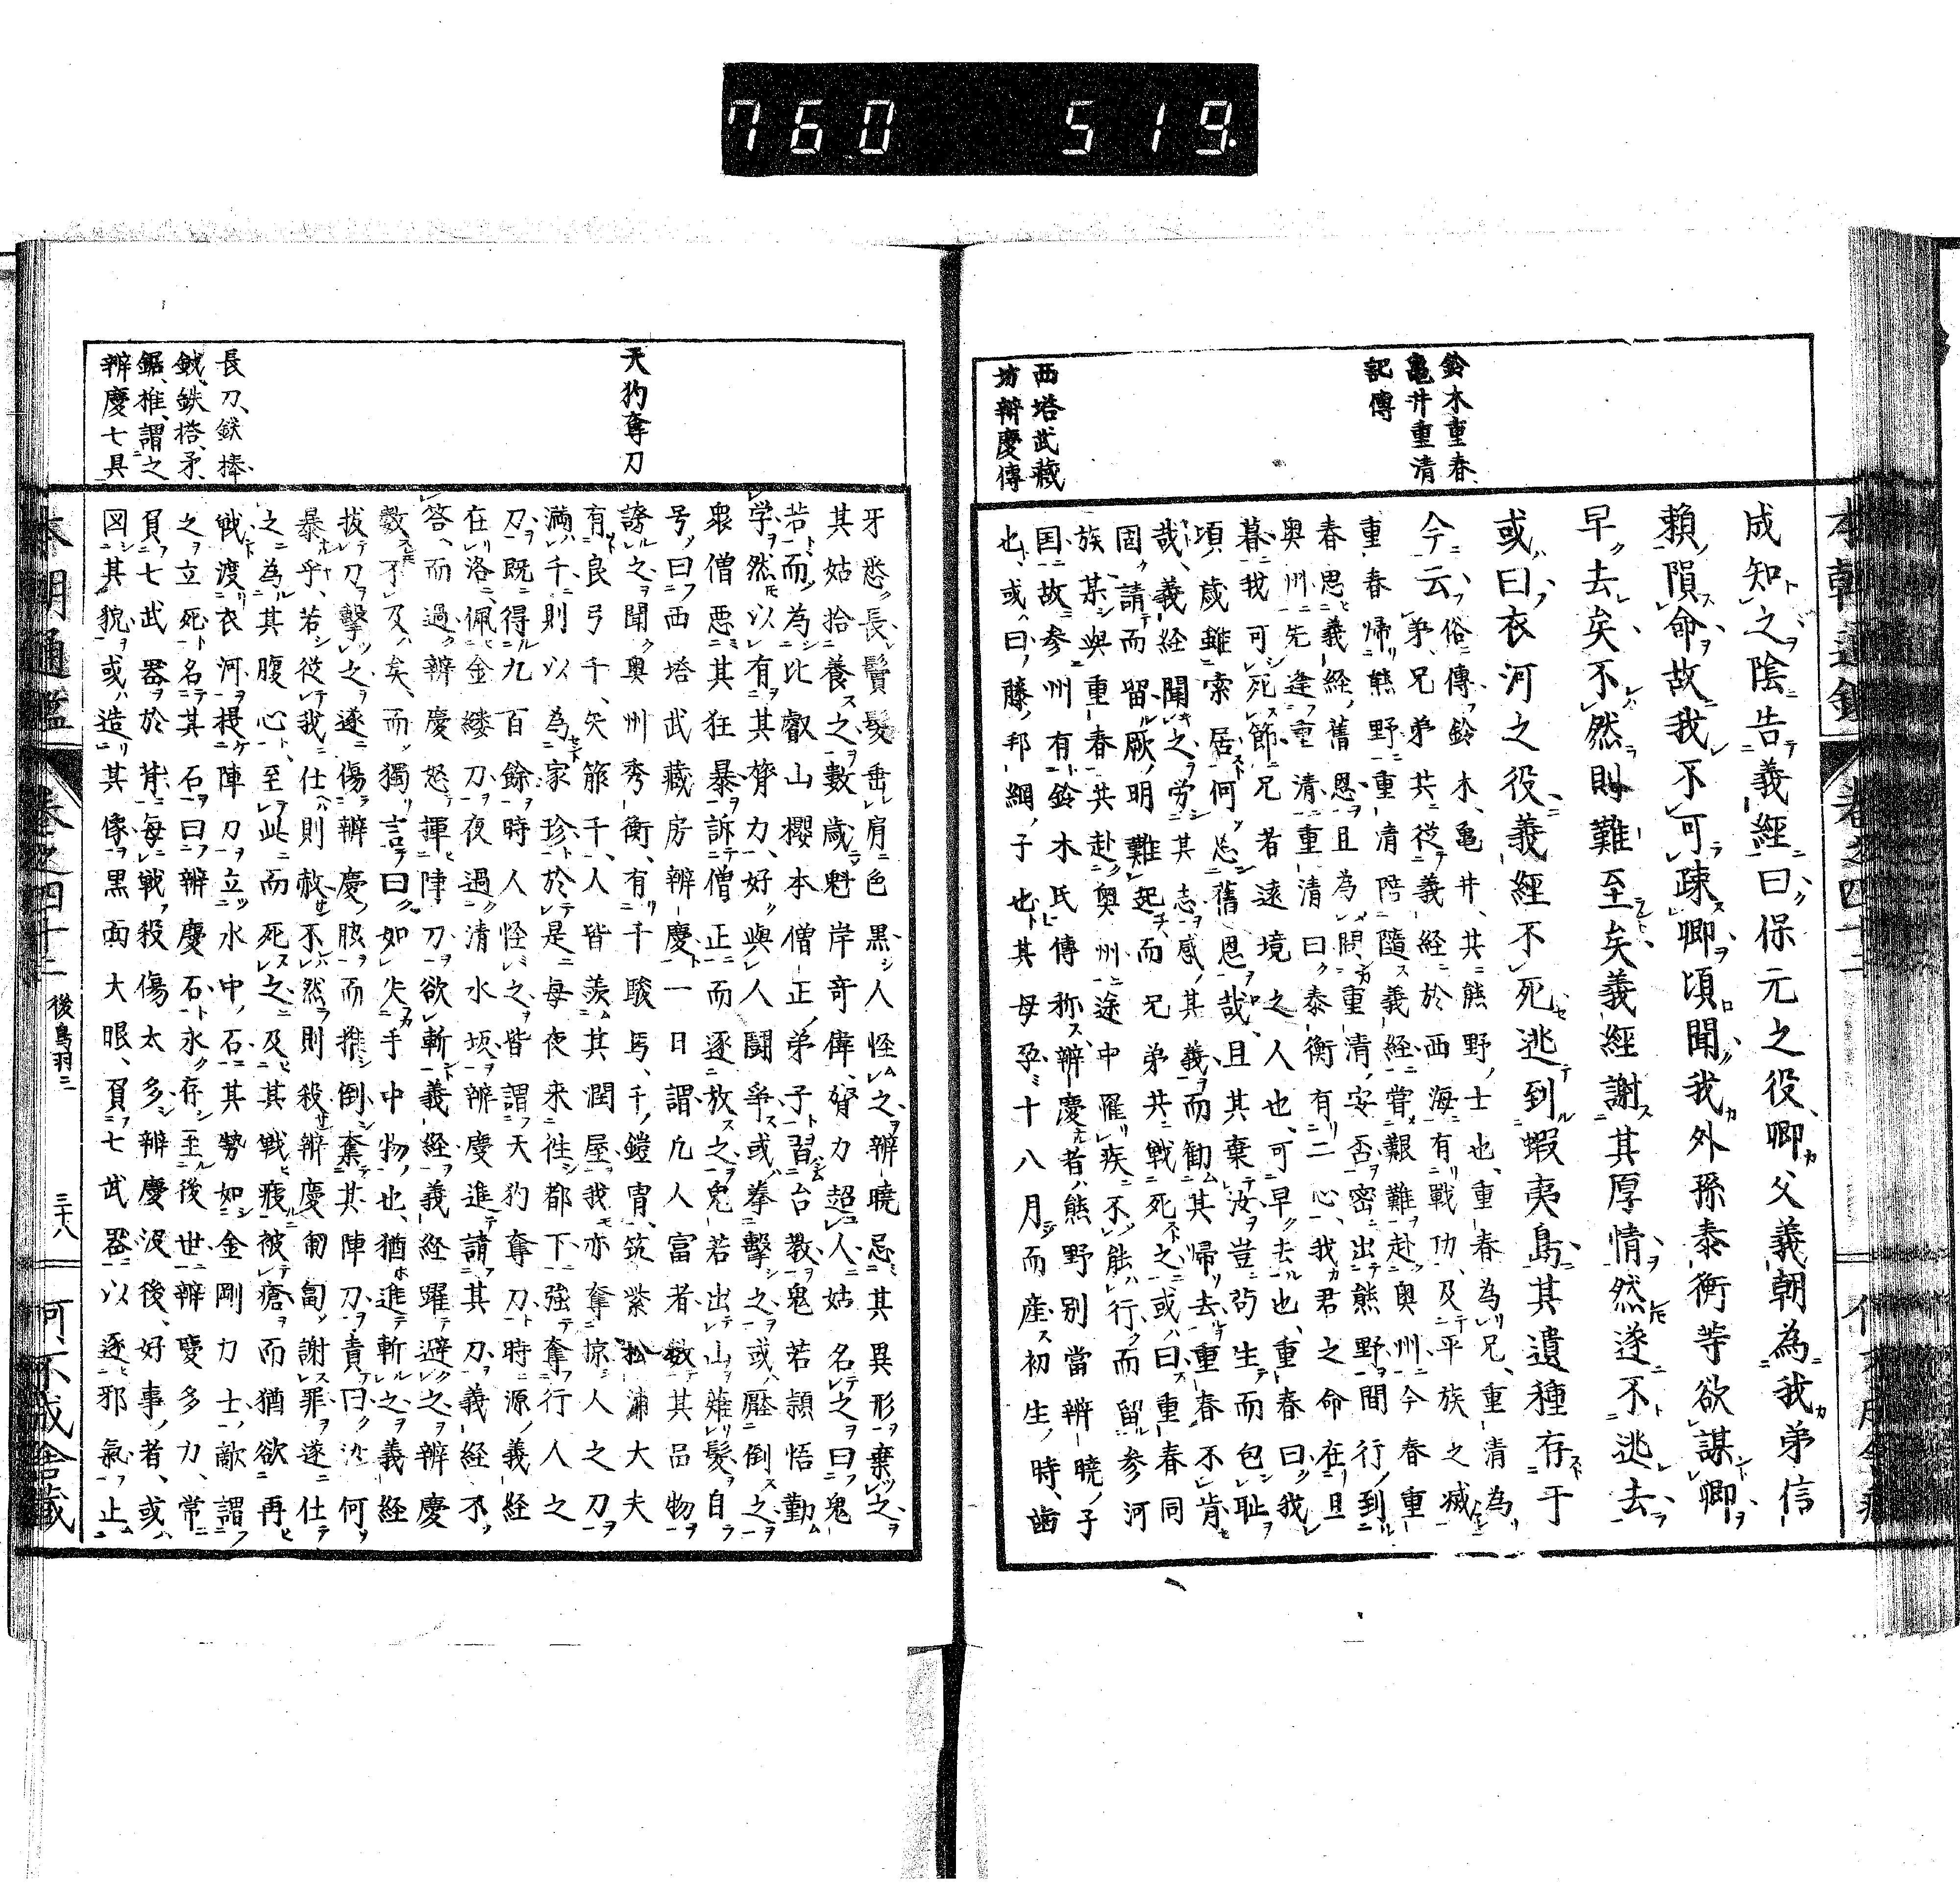 760 519.
鈴木重春
亀井重清
記傳
西塔武藏
坊辨慶傳
成知之陰告義經曰保元之役卿父義朝為我弟信
賴隕命故我不可踈卿頃聞我外孫泰衡等欲謀卿
早去矣不然則難至矣義經謝其厚情然遂不逃去
或曰衣河之役義經不死逃到蝦夷島其遺種存于
今云俗傳鈴木亀井其熊野士也重春為兄重清為
弟兄弟共從義經於西海有戰功及平族之滅
重春歸熊野重清陪隨義經嘗艱難赴奥州今春重
春思義經舊恩且為問重清安否密出熊野間行到
奥州先逢重清重清曰泰衡有二心我君之命在旦
暮我可死節兄者遠境之人也可早去也重春曰我
頃歲雖索居何忘舊恩哉且其棄汝豈苟生而包耻
哉義經聞之労其志感其義而勧其歸去重春不肯
固請而留厥明難起而兄弟共戰死之或曰重春同
族某與重春共赴奥州途中罹疾不能行而留参河
国故参州有鈴木氏傳称辨慶者熊野別當辨曉子
也或曰藤邦綱子也其母孕十八月而産初生時齒
天狗奪刀
長刀、鉄捧、
鉞、鉄撘、矛、
鋸、椎、謂之
辨慶七具
牙悉長鬢髮垂肩色黒人怪之辨曉忌其異形棄之
其姑拾養之數歲魁岸奇偉膂力超人姑名之曰鬼
若而為比叡山櫻本僧正弟子習台教鬼若頴悟勤
学然以有其膂力好與人闘爭或拳擊之或壓倒之
衆僧惡其狂暴訴僧正而逐放之鬼若出山薙髮自
号曰西塔武藏房辨慶一日謂凡人富者數其品物
誇之聞奥州秀衡有千駿馬千鎧冑筑紫松浦大夫
有良弓千矢箙千人皆羨其潤屋我亦奪掠人之刀
満千則以為家珍於是每夜来徃都下強奪行人之
刀既得九百餘時人怪之皆謂天狗奪刀時源義經
在洛佩金縷刀夜過清水坂辨慶進請其刀義經不
答而過辨慶怒揮陣刀欲斬義經義經躍避之辨慶
數不及矣而獨言曰如失手中物也猶進斬之義經
拔刀擊之遂傷辨慶股而推倒奪其陣刀責曰汝何
暴乎若從我仕則赦不然則殺辨慶匍匐謝罪遂仕
之為其腹心至此而死之及其戰疲被瘡而猶欲再
戰渡衣河提陣刀立水中石其勢如金剛力士敵謂
之立死名其石曰辨慶石永存至後世辨慶多力常
負七武器於背每戰殺傷太多辨慶没後好事者或
図其貌或造其像黒面大眼負七武器以逐邪氣止
本朝通鑑 卷之四十二 後鳥羽二 三十八